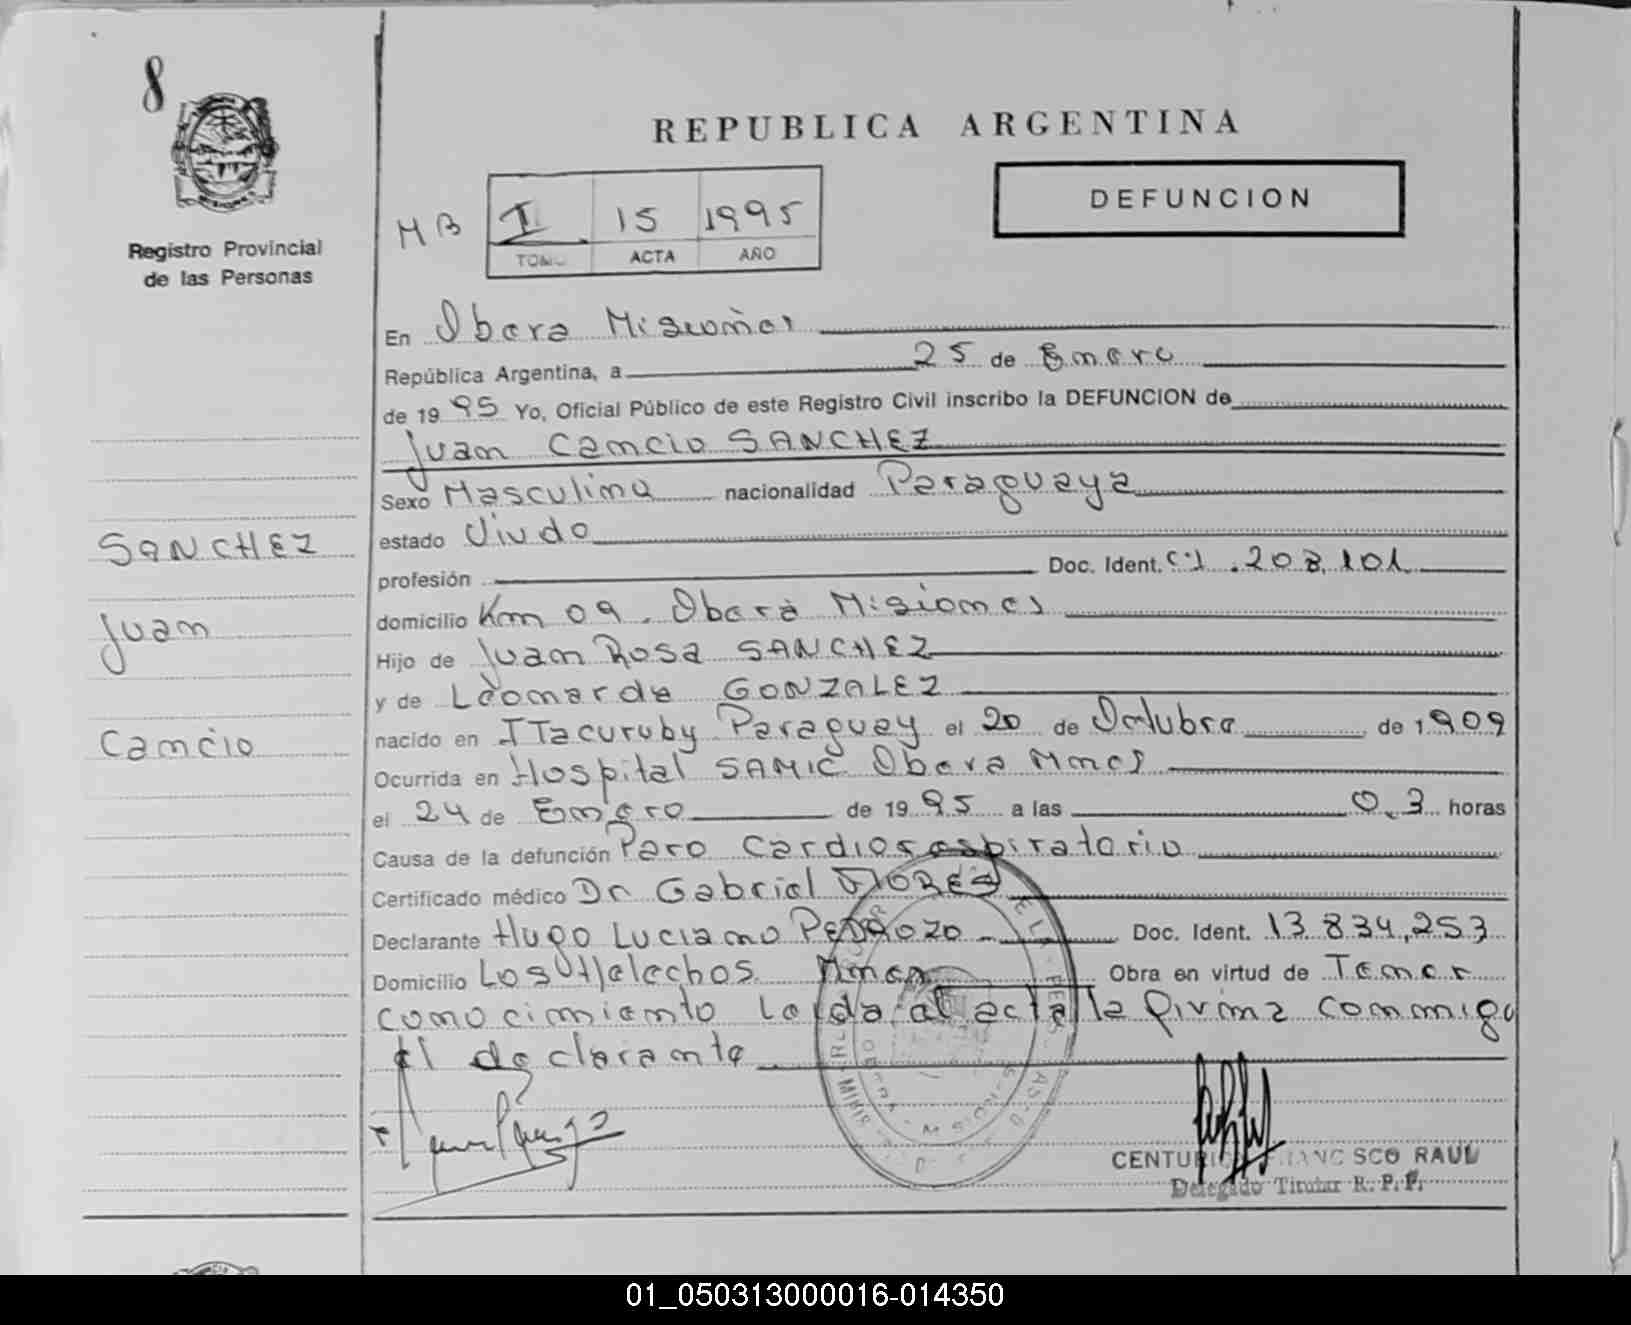 8
REPUBLICA ARGENTINA
DEFUNCION
Registro Provincial
de las Personas
MB I 15 1995
TOMO ACTA AÑO
En Obera Misiones
República Argentina, a 25 de Enero
de 19 95 Yo, Oficial Público de este Registro Civil inscribo la DEFUNCION de
Juan Cancio SANCHEZ
Sexo Masculino nacionalidad Paraguaya
estado Viudo
profesión Doc. Ident. C.I. 208.101
domicilio Km 09. Oberà Misiones
Hijo de Juan Rosa SANCHEZ
y de Leonarda GONZALEZ
nacido en ITacuruby Paraguay el 20 de Octubre de 1909
Ocurrida en Hospital SAMIC Obera Mnes
el 24 de Enero de 19 95 a las 0,3 horas
Causa de la defunción Paro Cardiorespiratorio
Certificado médico Dr Gabriel FLORES
Declarante Hugo Luciano PEDROZO Doc. Ident. 13.834,253
Domicilio Los Helechos Mnes Obra en virtud de Tener
conocimiento Leida el acta la firma conmigo
el declarante
SANCHEZ
Juan
Cancio
CENTURION FRANCISCO RAUL
Delegado Titular R. P. P.
01_050313000016-014350